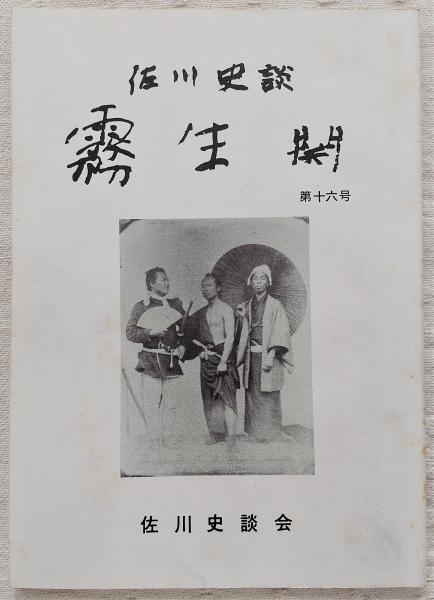 佐川史談
霧生関
第十六号
佐川史談会